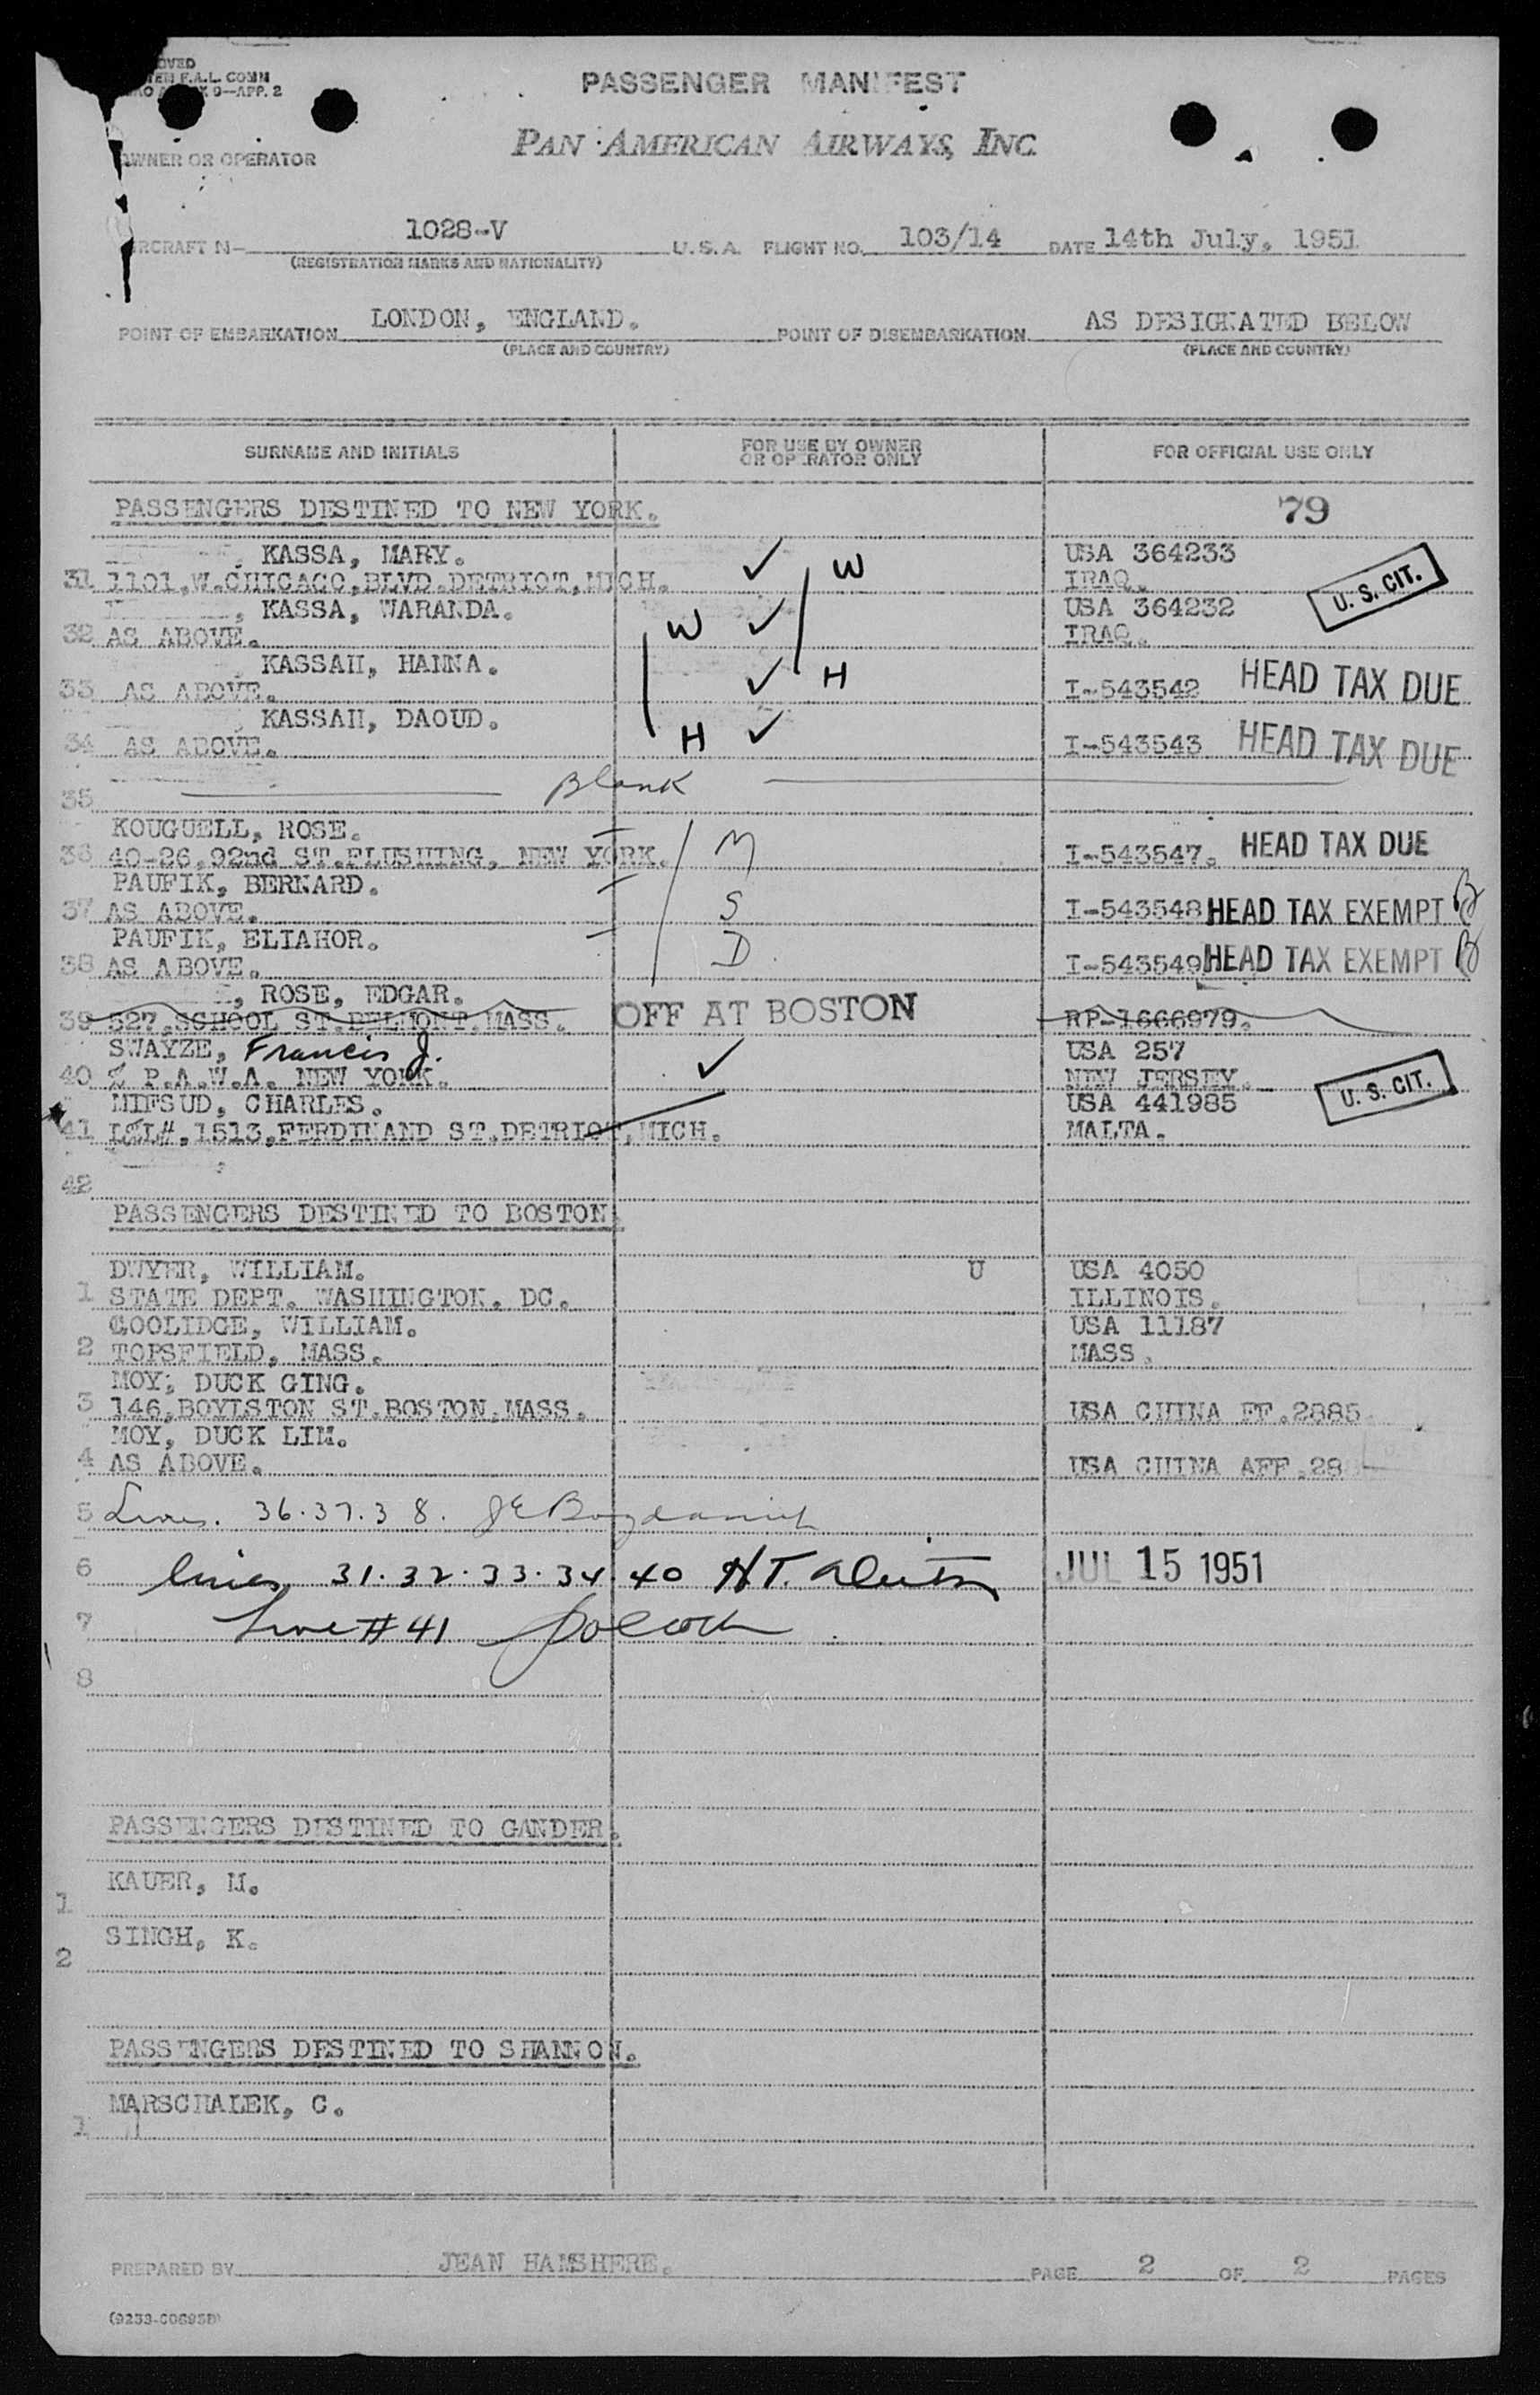 PASSENGER MANIFEST
PAN AMERICAN AIRWAYS, INC.
OWNER OR OPERATOR
1028-V U.S.A. FLIGHT NO. 103/14 DATE 14th July, 1951
(REGISTRATION MARKS AND NATIONALITY)
POINT OF EMBARKATION LONDON, ENGLAND. POINT OF DISEMBARKATION AS DESIGNATED BELOW
(PLACE AND COUNTRY) (PLACE AND COUNTRY)
SURNAME AND INITIALS FOR USE BY OWNER OR OPERATOR ONLY FOR OFFICIAL USE ONLY
PASSENGERS DESTINED TO NEW YORK. 79
KASSA, MARY. W USA 364233
31 1101,W.CHICAGO,BLVD.DETRIOT,MICH. IRAQ. U. S. CIT.
KASSA, WARANDA. W USA 364232
32 AS ABOVE. IRAQ.
KASSAH, HANNA. H
33 AS ABOVE. I-543542 HEAD TAX DUE
KASSAH, DAOUD. H
34 AS ABOVE. I-543543 HEAD TAX DUE
35 Blank
KOUGUELL, ROSE. M
36 40-26,92nd ST.FLUSHING, NEW YORK. I-543547. HEAD TAX DUE
PAUFIK, BERNARD. S
37 AS ABOVE. I-543548 HEAD TAX EXEMPT
PAUFIK, ELIAHOR. D
38 AS ABOVE. I-543549 HEAD TAX EXEMPT
, ROSE, EDGAR.
39 527,SCHOOL ST.BELMONT.MASS. OFF AT BOSTON RP-1666979.
SWAYZE, Francis J. USA 257
40 % P.A.W.A. NEW YORK. NEW JERSEY. U. S. CIT.
MIFSUD, CHARLES. USA 441985
41 1513,FERDINAND ST.DETRIOT,MICH. MALTA.
42
PASSENGERS DESTINED TO BOSTON.
DWYER, WILLIAM. U USA 4050
1 STATE DEPT. WASHINGTON. DC. ILLINOIS.
COOLIDGE, WILLIAM. USA 11187
2 TOPSFIELD, MASS. MASS.
MOY, DUCK GING.
3 146,BOYLSTON ST.BOSTON.MASS. USA CHINA FF.2885
MOY, DUCK LIM.
4 AS ABOVE. USA CHINA AFF.28
5 Lines. 36.37.38.
6 lines 31.32.33.34.40 JUL 15 1951
7 Line # 41
8
PASSENGERS DESTINED TO GANDER.
KAUER, M.
1
SINGH, K.
2
PASSENGERS DESTINED TO SHANNON.
MARSCHALEK, C.
1
PREPARED BY JEAN HAMSHERE. PAGE 2 OF 2 PAGES